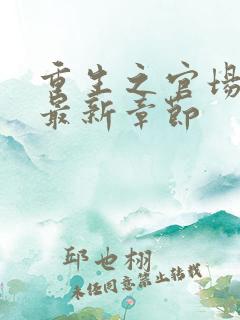 重生之官场
最新章节
邱也栩
未经同意禁止转载